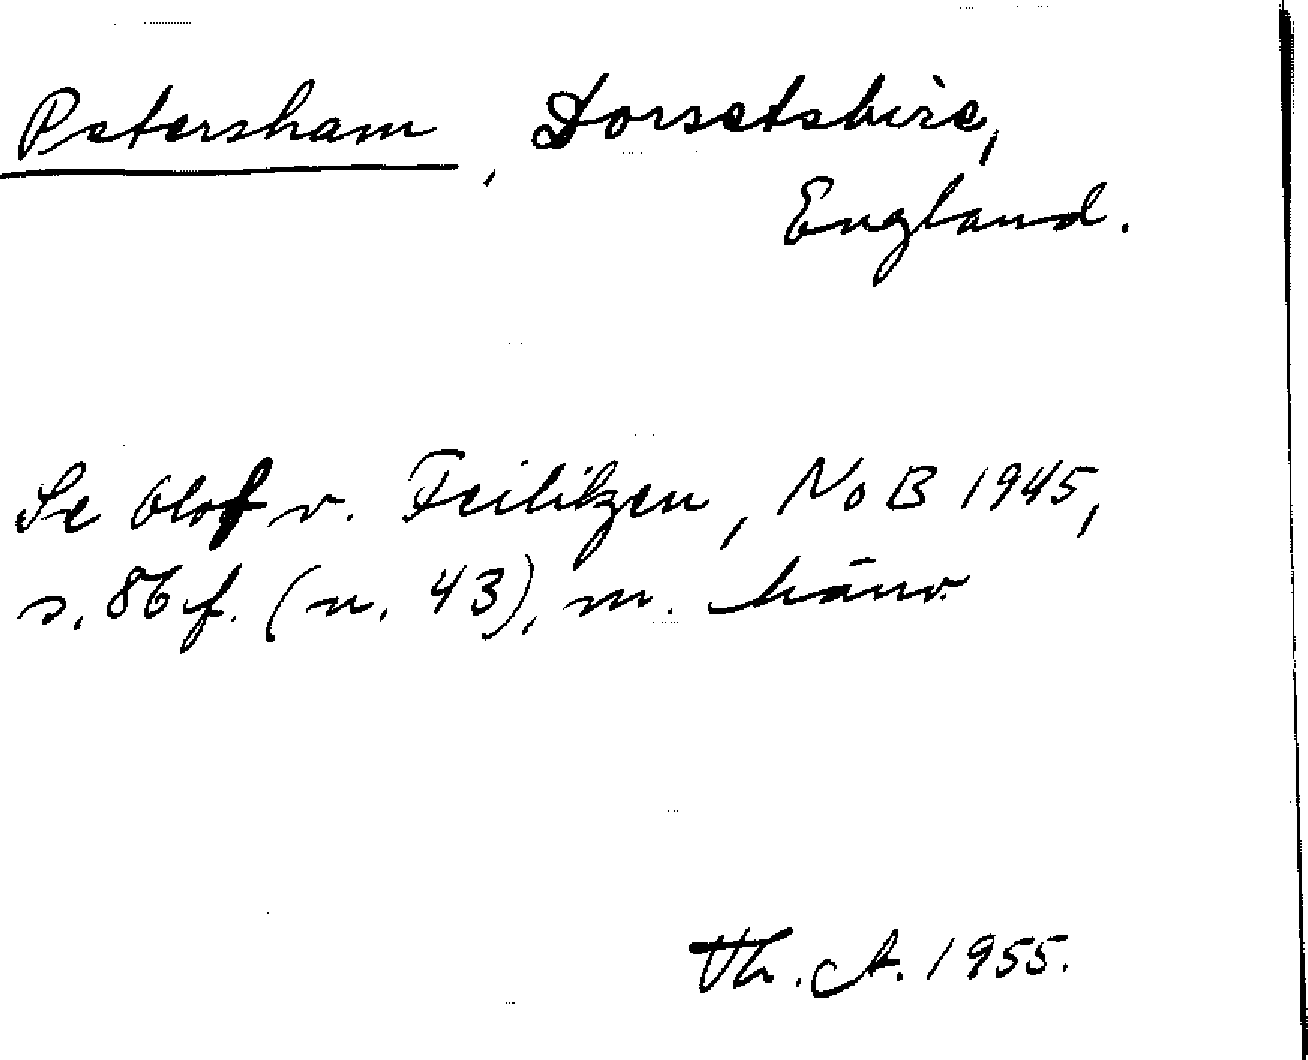 Petersham, Dorsetshire,
England.
Se Olof v. Feilitzen, NoB 1945,
s. 86 f. (n. 43), m. hänv.
Th. A. 1955.